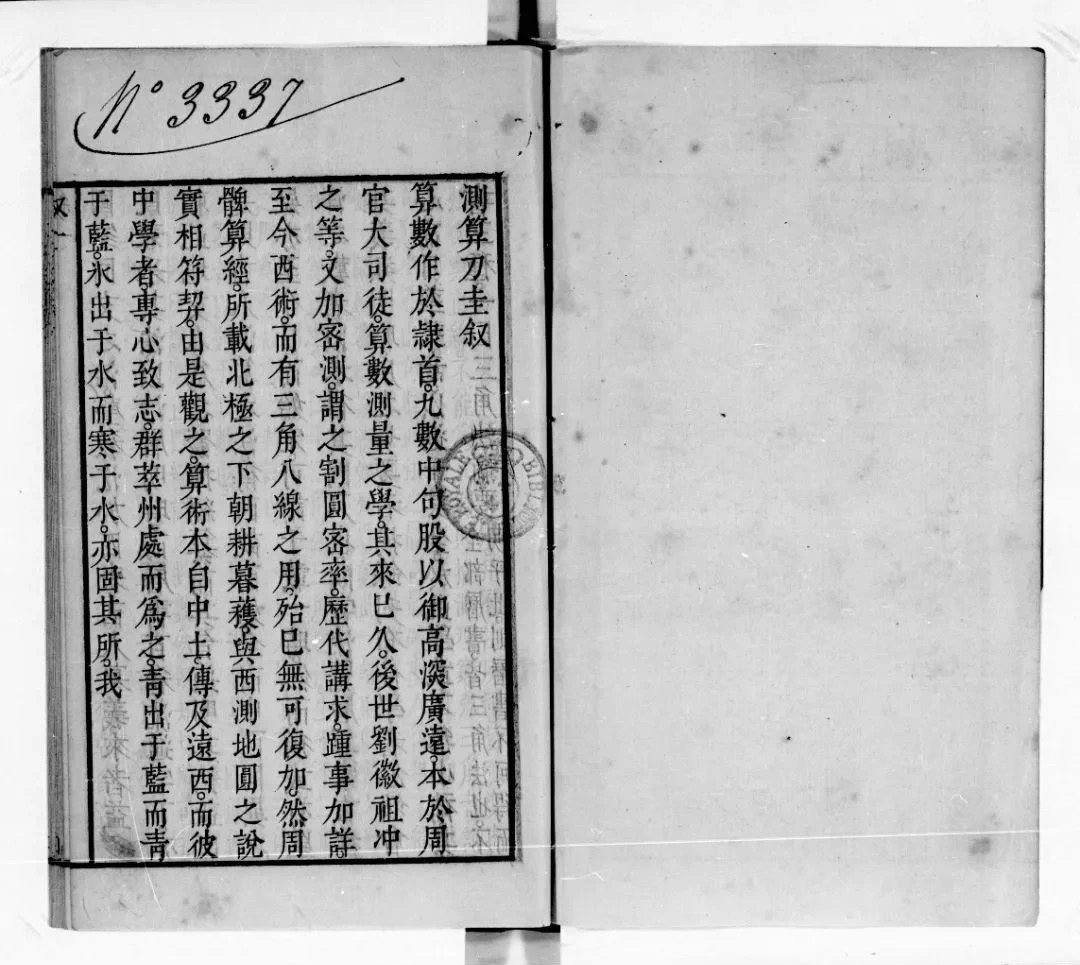 Nº 3337
測算刀圭叙
算數作於隷首。九數中句股以御高深廣遠。本於周
官大司徒。算數測量之學。其來已久。後世劉徽祖冲
之等。又加密測。謂之割圓密率。歷代講求。踵事加詳。
至今西術。而有三角八線之用。殆已無可復加。然周
髀算經。所載北極之下朝耕暮穫。與西測地圓之說
實相符契。由是觀之。算術本自中土。傳及遠西。而彼
中學者。專心致志。群萃州處而為之。青出于藍而青
于藍。氷出于水而寒于水。亦固其所。我
叙 一